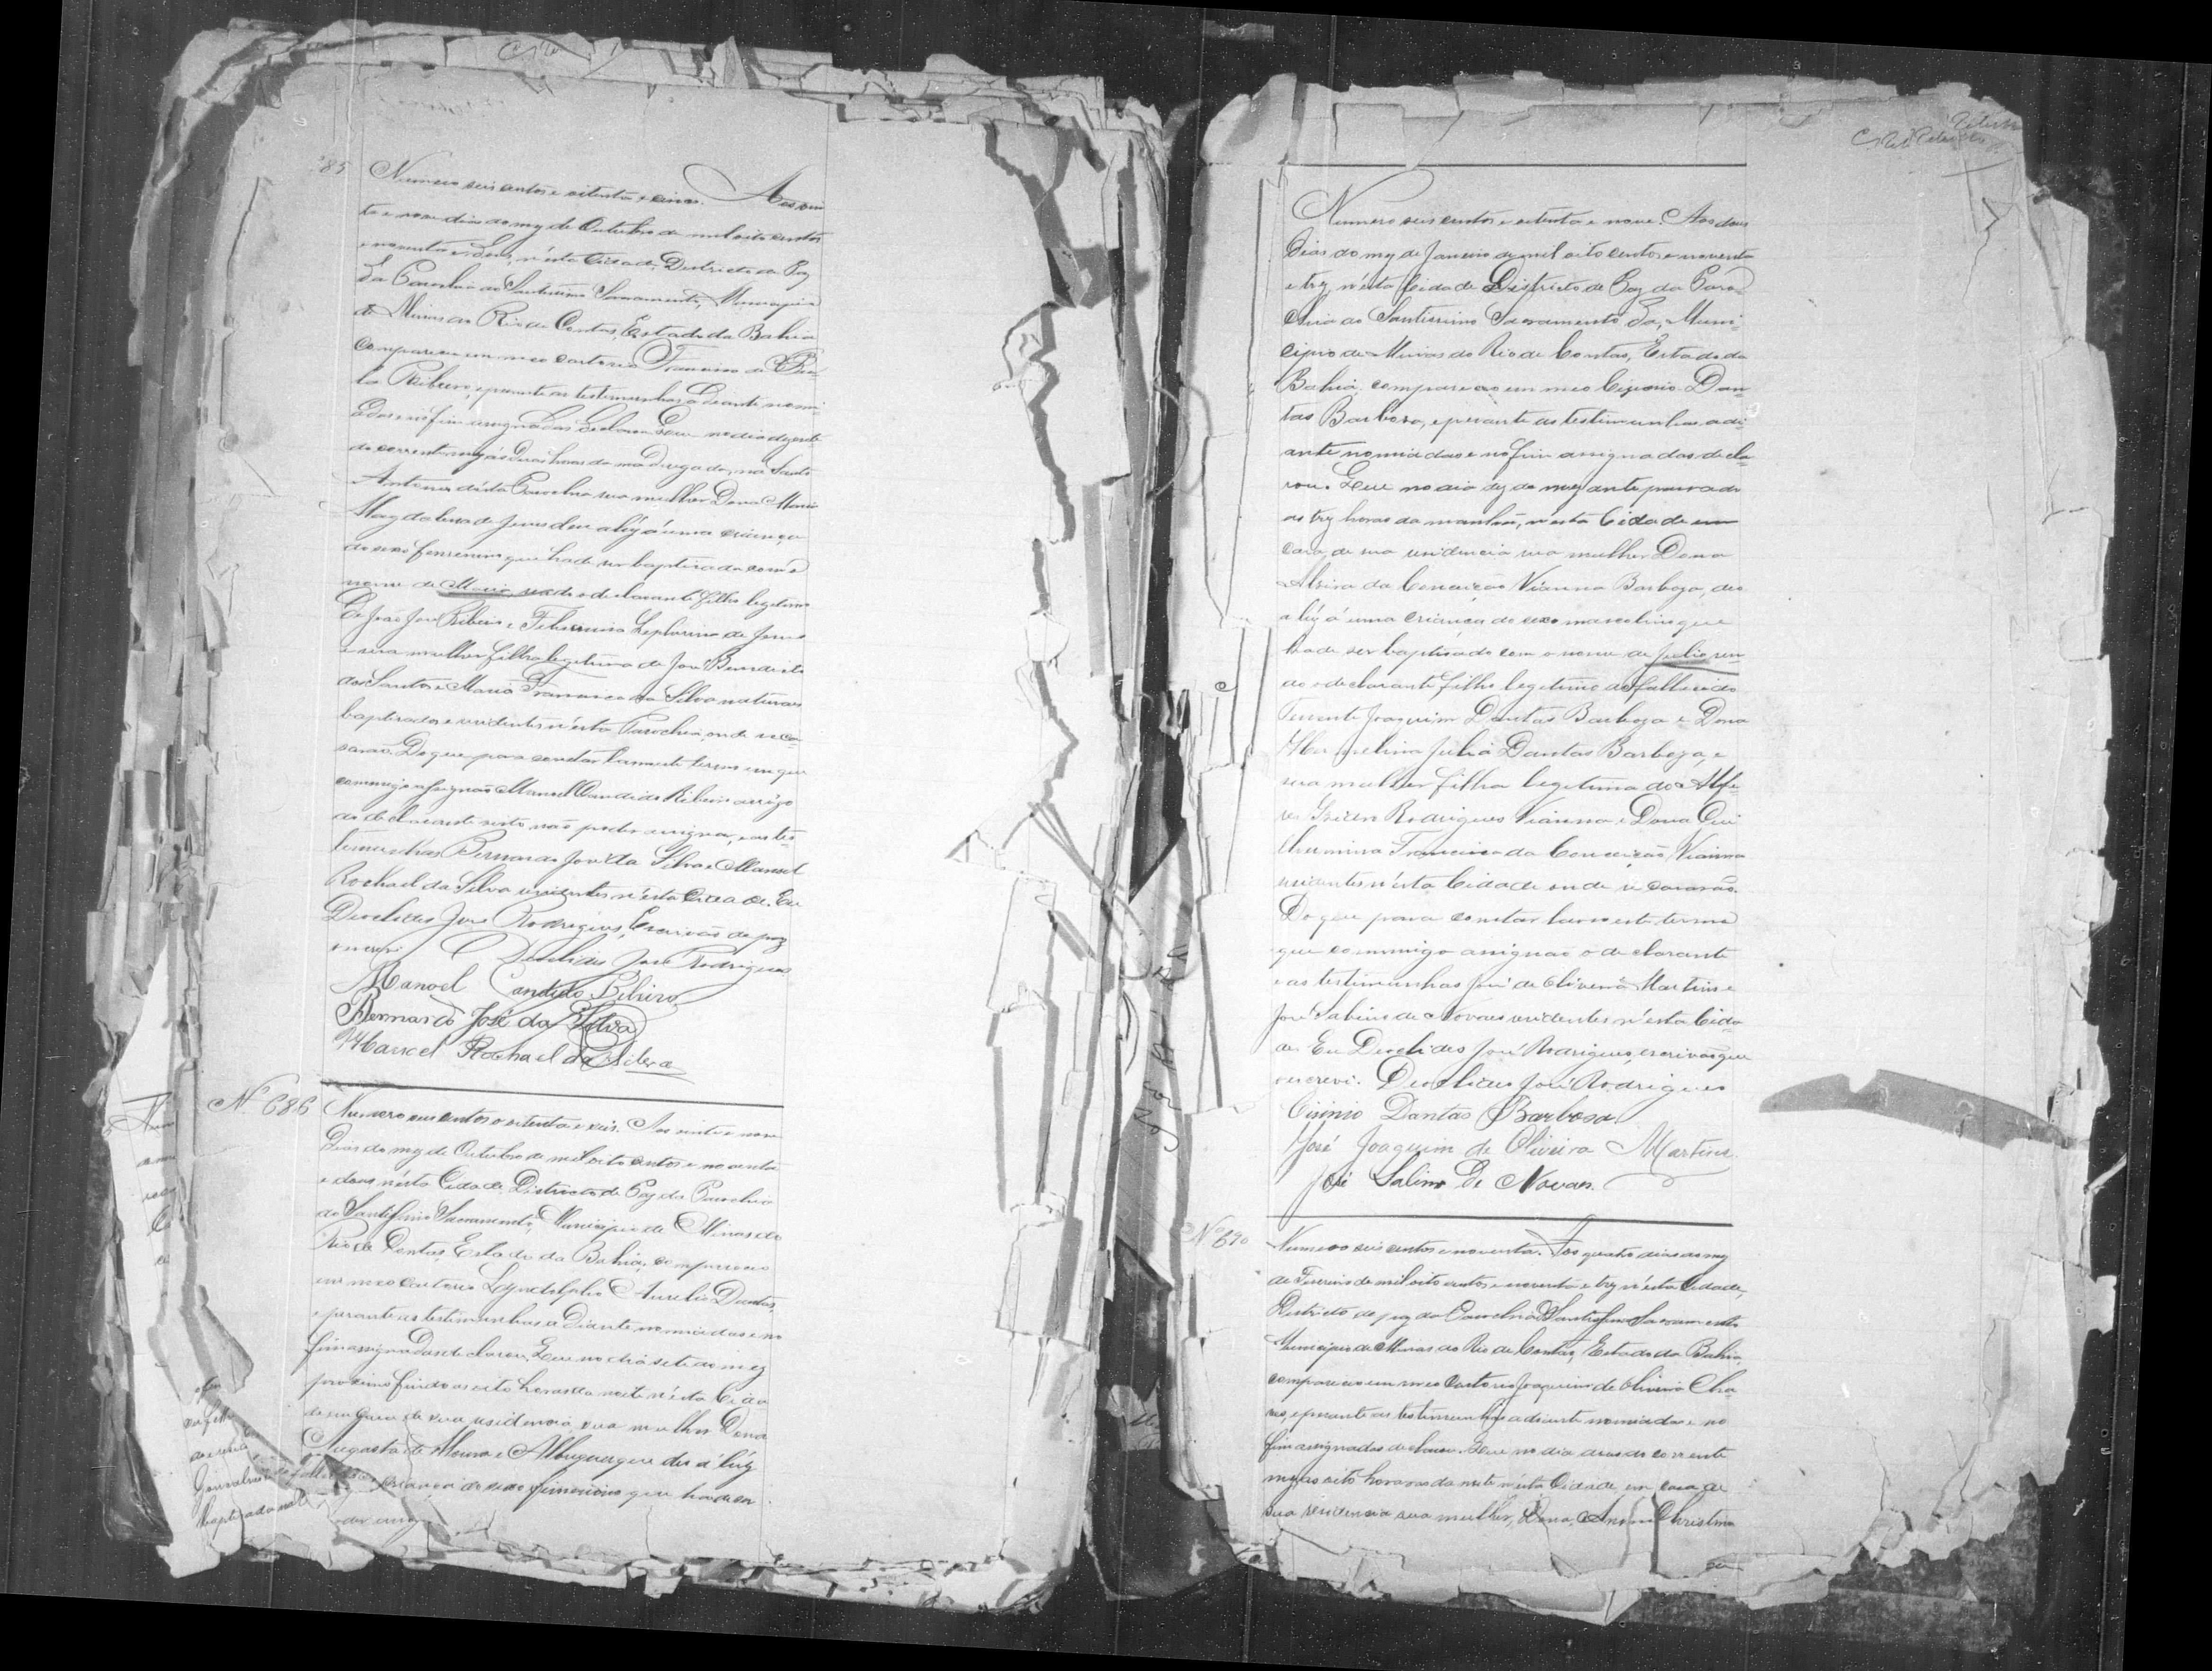 '85
Numero seis centos e oitenta e cinco. Aos vin
te e nove dias do mez de Outubro de mil oito centos
e noventa e dous, n'esta Cidade, Districto de Paz
da Parochia do Santissimo Sacramento, Municipio
de Minas do Rio de Contas, Estado da Bahia
compareceu em meo cartorio Francisco de Pau-
la Ribeiro, e perante as testemunhas a deante nomi-
adas e no fim assignadas declarou: Que no dia dezesete
do corrente mez ás duas horas da madrugada, no Santo
Antonio d'esta Parochia sua mulher Dona Maria
Magdalena de Jesus deu a lúz á uma criança
do sexo femenino que hade ser baptisada com o
nome de Maria sendo o declarante filho legitimo
de João José Ribeiro e Felismina de Jesus
e sua mulher filha legitima de José Benedicto
dos Santos e Maria Francisca da Silva naturaes
baptisados e residentes n'esta Parochia, onde se ca-
sarão. Do que para constar lavrei este termo em que
commigo assignão Manoel Candido Ribeiro a rôgo
do declarante visto não poder assignar, e as tes-
temunhas Bernardo José da Silva e Manoel
Rochael da Silva residentes n'esta Cidade. Eu
Deoclides José Rodrigues, Escrivão de paz
o escrevi. Deoclides José Rodrigues
Manoel Candido Ribeiro
Bernardo José da Silva
Manoel Rochael da Silva
Nº 686
Numero seis centos e oitenta e seis. Aos vinte e nove
dias do mez de Outubro de mil oito centos e noventa
e dous n'esta Cidade, Districto de Paz da Parochia
do Santissimo Sacramento, Municipio de Minas do
Rio de Contas, Estado da Bahia, compareceo
em meo cartorio Aurelio Dantas,
e perante as testemunhas a diante nomiadas e no
fim assignadas declarou. Que no dia sete do mez
proximo findo as oito horas da noite n'esta Cida
de em casa de sua residencia sua mulher Dona
Augusta de Moura e Albuquerque deu á lúz
criança do sexo femenino que hade ser
baptisada
Numero seis centos e oitenta e nove. Aos dous
dias do mez de Janeiro de mil oito centos e noventa
e trez n'esta Cidade Districto de Paz da Paro-
chia do Santissimo Sacramento da, Muni-
cipio de Minas do Rio de Contas, Estado da
Bahia, compareceo em meo Cizinio Dan-
tas Barboza, e perante as testimunhas adi-
ante nomiadas e no fim assignadas decla-
rou. Que no dia dez do mez ante passado
as trez horas da manhã, n'esta Cidade em
caza de sua residencia sua mulher Dona
Alzira da Conceição Vianna Barboza, deo
a lúz á uma criança do sexo masculino que
hade ser baptisado com o nome de Julio sen-
do o declarante filho legitimo do fallecido
Tenente Joaquim Dantas Barboza e Dona
Hermelina Julia Dantas Barboza, e
sua mulher filha legitima do Alfe-
res Rodrigues Vianna e Dona Gui
lhermina Francisca da Conceição Vianna
residentes n'esta Cidade onde se casarão.
Do que para constar lavrei este termo
que commigo assignão o declarante
e as testimunhas José de Oliveira Martins e
José Salino de Novaes residentes n'esta Cida-
de. Eu Deoclides José Rodrigues, escrivão que
o escrevi. Deoclides José Rodrigues
Cisinio Dantas Barbosa
José Joaquim de Oliveira Martins
José Salino de Novaes.
Nº 690
Numero seis centos e noventa. Aos quatro dias do mez
de Fevereiro de mil oito centos e noventa e trez n'esta Cidade,
Districto de paz da Parochia do Santissimo Sacramento
Municipio de Minas do Rio de Contas, Estado da Bahia,
compareceo em meo Cartorio Joaquim de Oliveira Cha-
ves, e perante as testimunhas adiante nomiadas e no
fim assignadas declarou. Que no dia dous do corrente
mez as oito horas da noite n'esta Cidade, em casa de
sua residencia sua mulher, Dona, Anna Christina